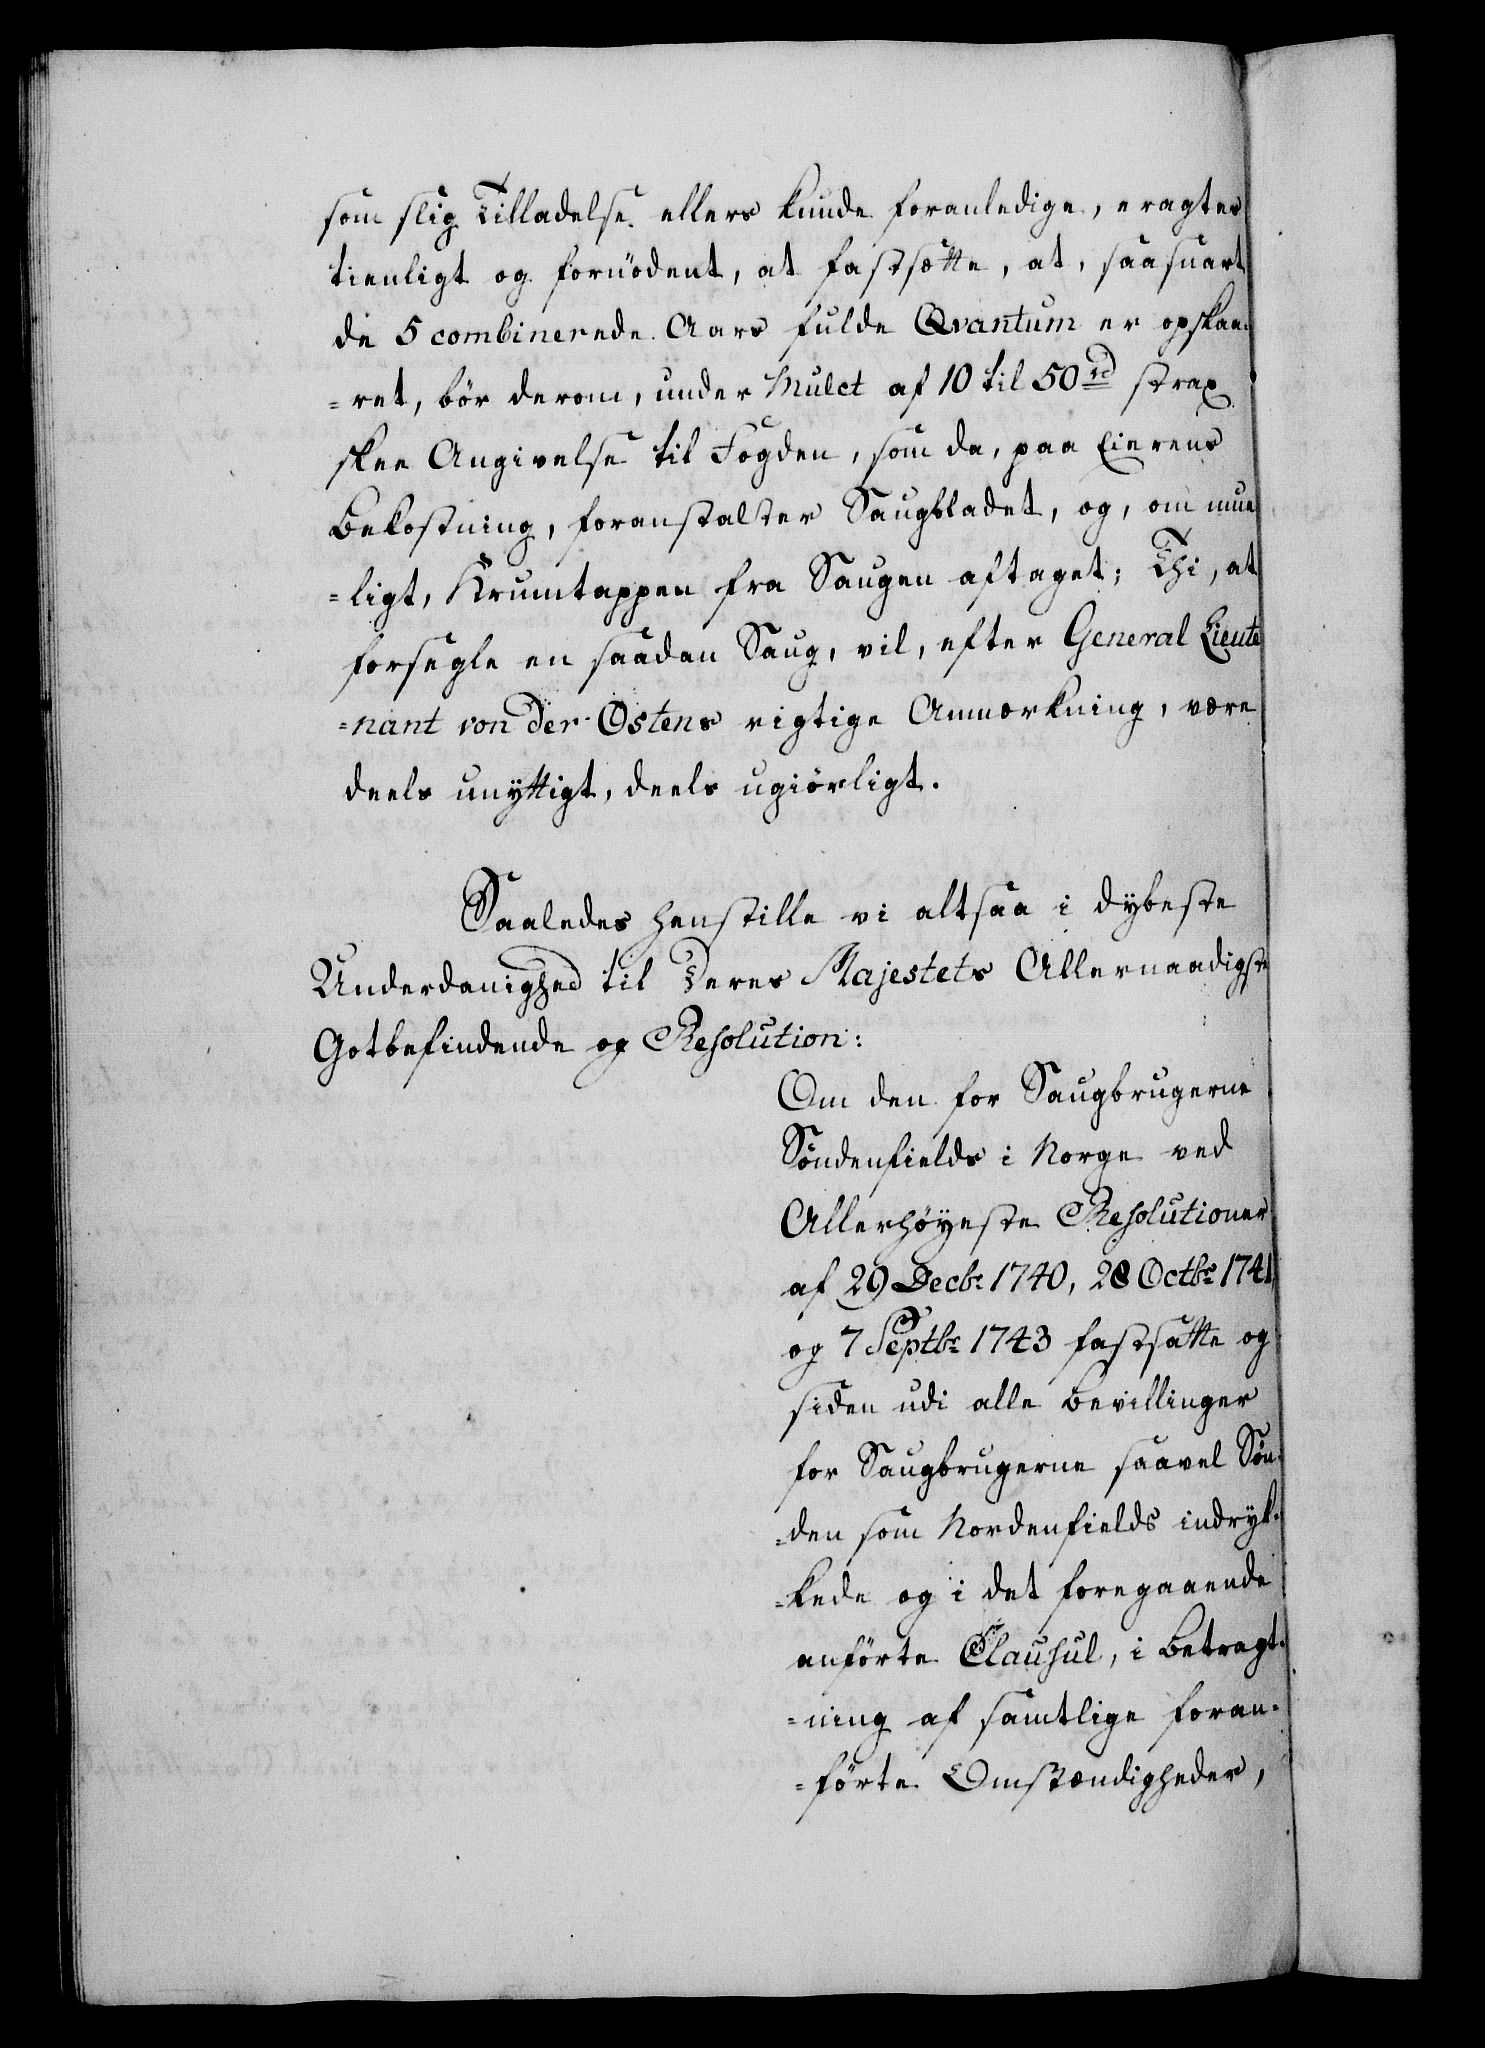 som slig Tilladelse ellers kunde foranledige, eragtes
tienligt og fornödent, at fastsætte, at, saasnart
de 5 combinerede Aars fulde Qvantum er opskaa-
=ret, bör derom, under Mulct af 10 til 50 rd strax
skee Angivelse til Fogden, som da, paa Eierens
Bekostning, foranstalter Saugbladet, og, om mue
=ligt, Krumtappen fra Saugen aftaget; Thi, at
forsegle en saadan Saug, vil, efter General Lieute
=nant von der Ostens rigtige Anmærkning, være
deels unÿttigt, deels ugiörligt.
Saaledes henstille vi altsaa i dÿbeste
Underdanighed til Deres Majestets Allernaadigste
Gotbefindende og Resolution:
Om den for Saugbrugerne
Söndenfields i Norge ved
Allerhöÿeste Resolutioner
af 29 Decbr 1740, 28 Octbr 1741
og 7 Septbr 1743 fastsatte og
siden udi alle Bevillinger
for Saugbrugerne saavel Sön-
=den som Nordenfields indrÿk-
=kede og i det foregaaende
anförte Clausul, i Betragt-
=ning af samtlige foran-
=förte Omstændigheder,